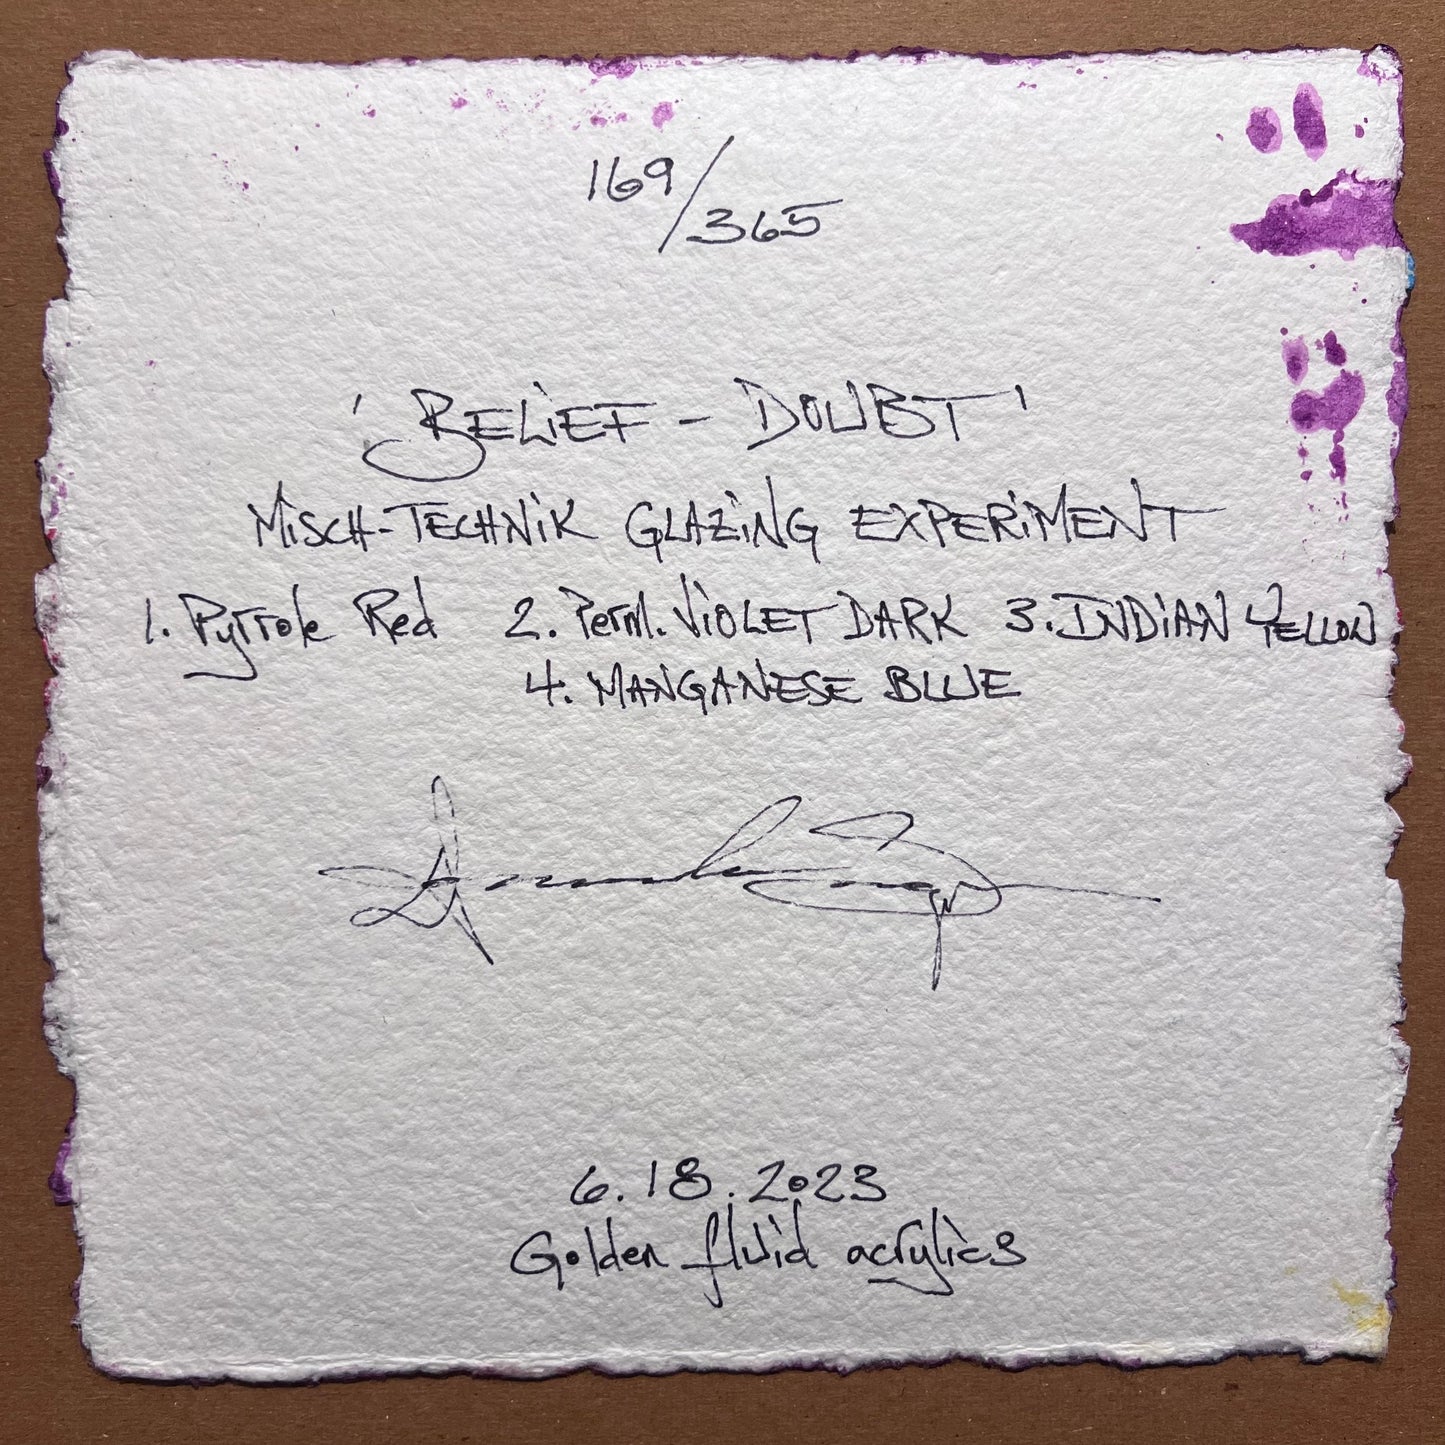 169/365
'BELIEF - DOUBT'
MISCH-TECHNIK GLAZING EXPERIMENT
1. Pyrrole Red 2. Perm. VIOLET DARK 3. INDIAN YELLOW
4. MANGANESE BLUE
6.18.2023
Golden fluid acrylics